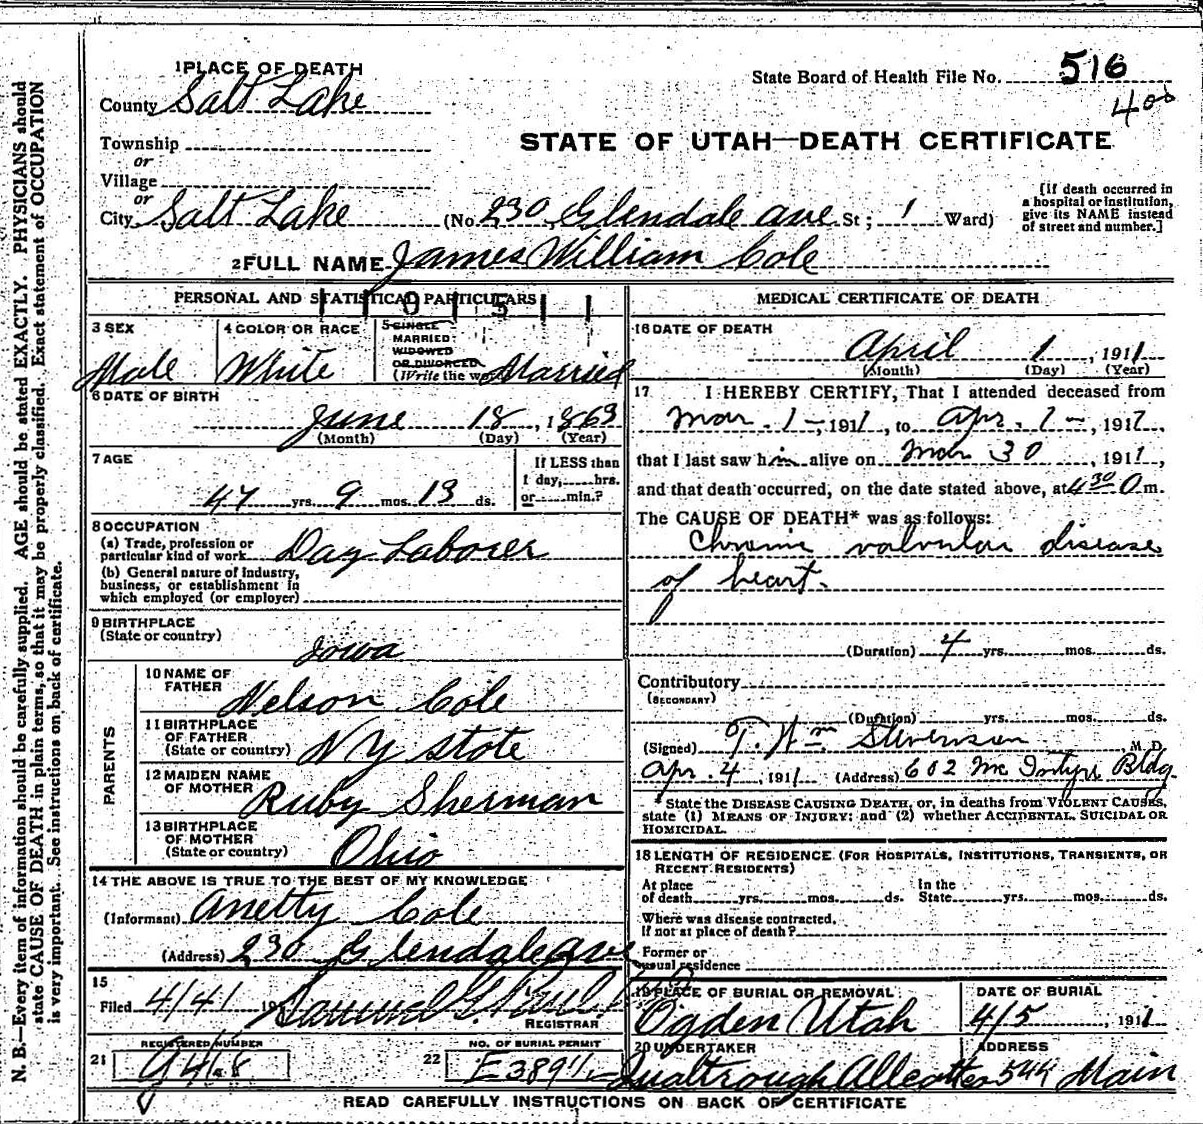 State Board of Health File No. 516
400
1 PLACE OF DEATH
County Salt Lake
STATE OF UTAH—DEATH CERTIFICATE
Township
or
Village
or
City Salt Lake (No 230, Glendale ave St; 1 Ward)
[If death occurred in a hospital or institution, give its NAME instead of street and number.]
2 FULL NAME James William Cole
PERSONAL AND STATISTICAL PARTICULARS
3 SEX Male
4 COLOR OR RACE White
5 SINGLE
MARRIED
WIDOWED
OR DIVORCED
(Write the word) Married
6 DATE OF BIRTH
June 18, 1863
(Month) (Day) (Year)
7 AGE
47 yrs. 9 mos. 13 ds.
If LESS than
1 day, hrs.
or min.?
8 OCCUPATION
(a) Trade, profession or
particular kind of work Day Laborer
(b) General nature of Industry,
business, or establishment in
which employed (or employer)
9 BIRTHPLACE
(State or country) Iowa
PARENTS
10 NAME OF
FATHER Nelson Cole
11 BIRTHPLACE
OF FATHER
(State or country) N Y State
12 MAIDEN NAME
OF MOTHER Ruby Sherman
13 BIRTHPLACE
OF MOTHER
(State or country) Ohio
14 THE ABOVE IS TRUE TO THE BEST OF MY KNOWLEDGE
(Informant) Anetty Cole
(Address) 230 Glendale ave
15
Filed 4/41 19
REGISTRAR
21 REGISTERED NUMBER
22 NO. OF BURIAL PERMIT
MEDICAL CERTIFICATE OF DEATH
16 DATE OF DEATH
April 1, 1911
(Month) (Day) (Year)
17 I HEREBY CERTIFY, That I attended deceased from
Mar. 1-, 1911, to Apr. 1-, 1911,
that I last saw him alive on Mar 30, 1911,
and that death occurred, on the date stated above, at 4 30 m.
The CAUSE OF DEATH* was as follows:
Chronic valvular disease
of heart.
(Duration) 4 yrs. mos. ds.
Contributory
(SECONDARY)
(Duration) yrs. mos. ds.
(Signed) T. Wm Stevenson, M. D.
Apr. 4, 1911 (Address) 602 McIntyre Bldg.
* State the DISEASE CAUSING DEATH, or, in deaths from VIOLENT CAUSES,
state (1) MEANS OF INJURY; and (2) whether ACCIDENTAL, SUICIDAL OR
HOMICIDAL.
18 LENGTH OF RESIDENCE (FOR HOSPITALS, INSTITUTIONS, TRANSIENTS, OR
RECENT RESIDENTS)
At place
of death yrs. mos. ds.
In the
State yrs. mos. ds.
Where was disease contracted,
If not at place of death?
Former or
usual residence
19 PLACE OF BURIAL OR REMOVAL
Ogden Utah
DATE OF BURIAL
4/5, 1911
20 UNDERTAKER
ADDRESS
Main
READ CAREFULLY INSTRUCTIONS ON BACK OF CERTIFICATE
N. B.—Every item of information should be carefully supplied. AGE should be stated EXACTLY. PHYSICIANS should
state CAUSE OF DEATH in plain terms, so that it may be properly classified. Exact statement of OCCUPATION
is very important. See instructions on back of certificate.